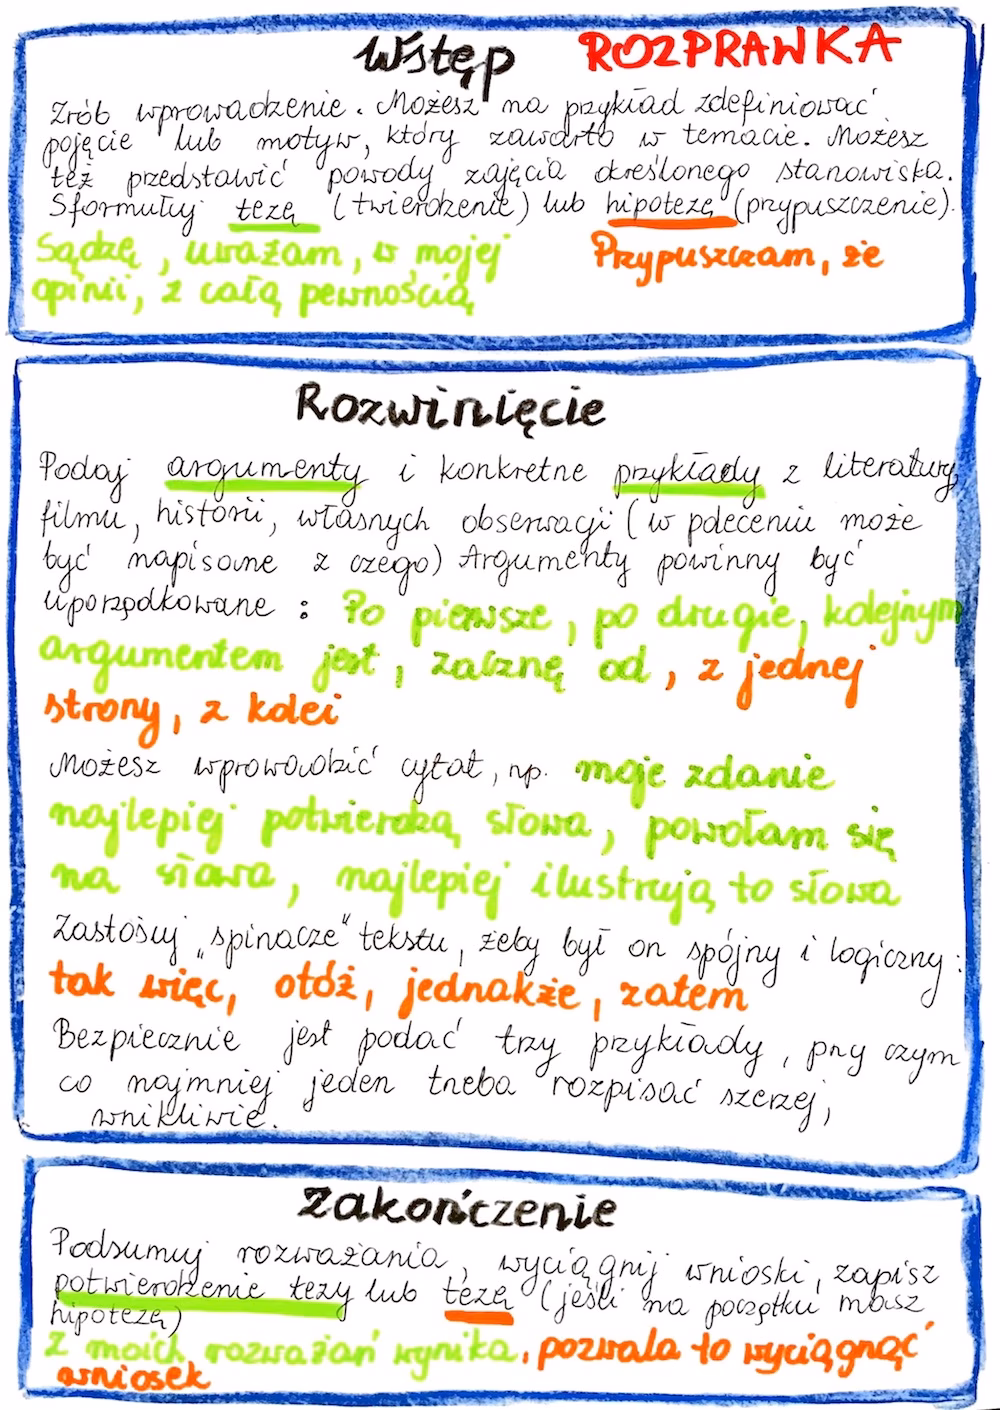 Wstęp ROZPRAWKA
Zrób wprowadzenie. Możesz na przykład zdefiniować
pojęcie lub motyw, który zawarto w temacie. Możesz
też przedstawić powody zajęcia określonego stanowiska.
Sformułuj tezę (twierdzenie) lub hipotezę (przypuszczenie).
Sądzę, uważam, w mojej
opinii, z całą pewnością
Przypuszczam, że
Rozwinięcie
Podaj argumenty i konkretne przykłady z literatury,
filmu, historii, własnych obserwacji (w poleceniu może
być napisane z czego) Argumenty powinny być
uporządkowane : Po pierwsze, po drugie, kolejnym
argumentem jest, zacznę od, z jednej
strony, z kolei
Możesz wprowadzić cytat, np. moje zdanie
najlepiej potwierdzą słowa, powołam się
na słowa, najlepiej ilustrują to słowa
Zastosuj „spinacze" tekstu, żeby był on spójny i logiczny:
tak więc, otóż, jednakże, zatem
Bezpiecznie jest podać trzy przykłady, przy czym
co najmniej jeden trzeba rozpisać szerzej,
wnikliwie.
Zakończenie
Podsumuj rozważania, wyciągnij wnioski, zapisz
potwierdzenie tezy lub tezę (jeśli na początku masz
hipotezę)
Z moich rozważań wynika, pozwala to wyciągnąć
wniosek